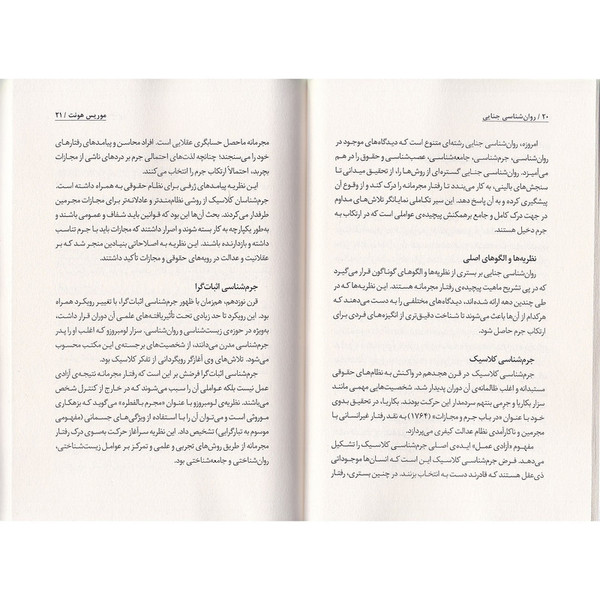 ۲۰ / روان‌شناسی جنایی
امروزه، روان‌شناسی جنایی رشته‌ای متنوع است که دیدگاه‌های موجود در
روان‌شناسی، جرم‌شناسی، جامعه‌شناسی، عصب‌شناسی و حقوق را در هم
می‌آمیزد. روان‌شناسی جنایی گستره‌ای از روش‌ها را، از تحقیق میدانی تا
سنجش‌های بالینی، به کار می‌بندد تا رفتار مجرمانه را درک کند و از وقوع آن
پیشگیری کرده و به آن پاسخ دهد. این سیر تکاملی نمایانگر تلاش‌های مداوم
در جهت درک کامل و جامع برهمکنش پیچیده‌ی عواملی است که در ارتکاب به
جرم دخیل هستند.
نظریه‌ها و الگوهای اصلی
روان‌شناسی جنایی بر بستری از نظریه‌ها و الگوهای گوناگون قرار می‌گیرد
که در پی تشریح ماهیت پیچیده‌ی رفتار مجرمانه هستند. این نظریه‌ها که در
طی چندین دهه ارائه شده‌اند، دیدگاه‌های مختلفی را به دست می‌دهند که
هرکدام از آن‌ها باعث می‌شوند تا شناخت دقیق‌تری از انگیزه‌های فردی برای
ارتکاب جرم حاصل شود.
جرم‌شناسی کلاسیک
جرم‌شناسی کلاسیک در قرن هجدهم در واکنش به نظام‌های حقوقی
مستبدانه و اغلب ظالمانه‌ی آن دوران پدیدار شد. شخصیت‌هایی مهمی مانند
سزار بکاریا و جرمی بنتهم سردمدار این حرکت بودند. بکاریا، در تحقیق بدوی
خود با عنوان «در باب جرم و مجازات» (۱۷۶۴) به نقد رفتار غیرانسانی با
مجرمین و ناکارآمدی نظام عدالت کیفری می‌پردازد.
مفهوم «آزادی عمل» ایده‌ی اصلی جرم‌شناسی کلاسیک را تشکیل
می‌دهد. فرض جرم‌شناسی کلاسیک این است که انسان‌ها موجوداتی
ذی‌عقل هستند که قادرند دست به انتخاب بزنند. در چنین بستری، رفتار
موریس هونت / ۲۱
مجرمانه ماحصل حسابگری عقلایی است. افراد محاسن و پیامدهای رفتارهای
خود را می‌سنجند؛ چنانچه لذت‌های احتمالی جرم بر دردهای ناشی از مجازات
بچربد، احتمالاً ارتکاب جرم را انتخاب می‌کنند.
این نظریه پیامدهای ژرفی برای نظام حقوقی به همراه داشته است.
جرم‌شناسان کلاسیک از روشی نظام‌مندتر و عادلانه‌تر برای مجازات مجرمین
طرفداری می‌کردند. بحث آن‌ها این بود که قوانین باید شفاف و عمومی باشند و
به‌طور یکپارچه به کار بسته شوند و اصرار داشتند که مجازات باید با جرم تناسب
داشته و بازدارنده باشند. این نظریه به اصلاحاتی بنیادین منجر شد که بر
عقلانیت و عدالت در رویه‌های حقوقی و مجازات تأکید داشتند.
جرم‌شناسی اثبات‌گرا
قرن نوزدهم، هم‌زمان با ظهور جرم‌شناسی اثبات‌گرا، با تغییر رویکرد همراه
بود. این رویکرد تا حد زیادی تحت تأثیر یافته‌های علمی آن دوران قرار داشت،
به‌ویژه در حوزه‌ی زیست‌شناسی و روان‌شناسی. سزار لومبروزو که اغلب او را پدر
جرم‌شناسی مدرن می‌دانند، از شخصیت‌های برجسته‌ی این مکتب محسوب
می‌شود. تلاش‌های وی آغازگر رویگردانی از تفکر کلاسیک بود.
جرم‌شناسی اثبات‌گرا فرضش بر این است که رفتار مجرمانه نتیجه‌ی آزادی
عمل نیست بلکه عواملی آن را باعث می‌شوند که در خارج از کنترل شخص
می‌باشند. نظریه‌ی لومبروزو با عنوان «مجرم بالفطره» می‌گوید که بزهکاری
موروثی است و می‌توان آن را با استفاده از ویژگی‌های جسمانی (مفهومی
موسوم به تبارگرایی) تشخیص داد. این نظریه سرآغاز حرکت به‌سوی درک رفتار
مجرمانه از طریق روش‌های تجربی و علمی و تمرکز بر عوامل زیست‌شناختی،
روان‌شناختی و جامعه‌شناختی بود.